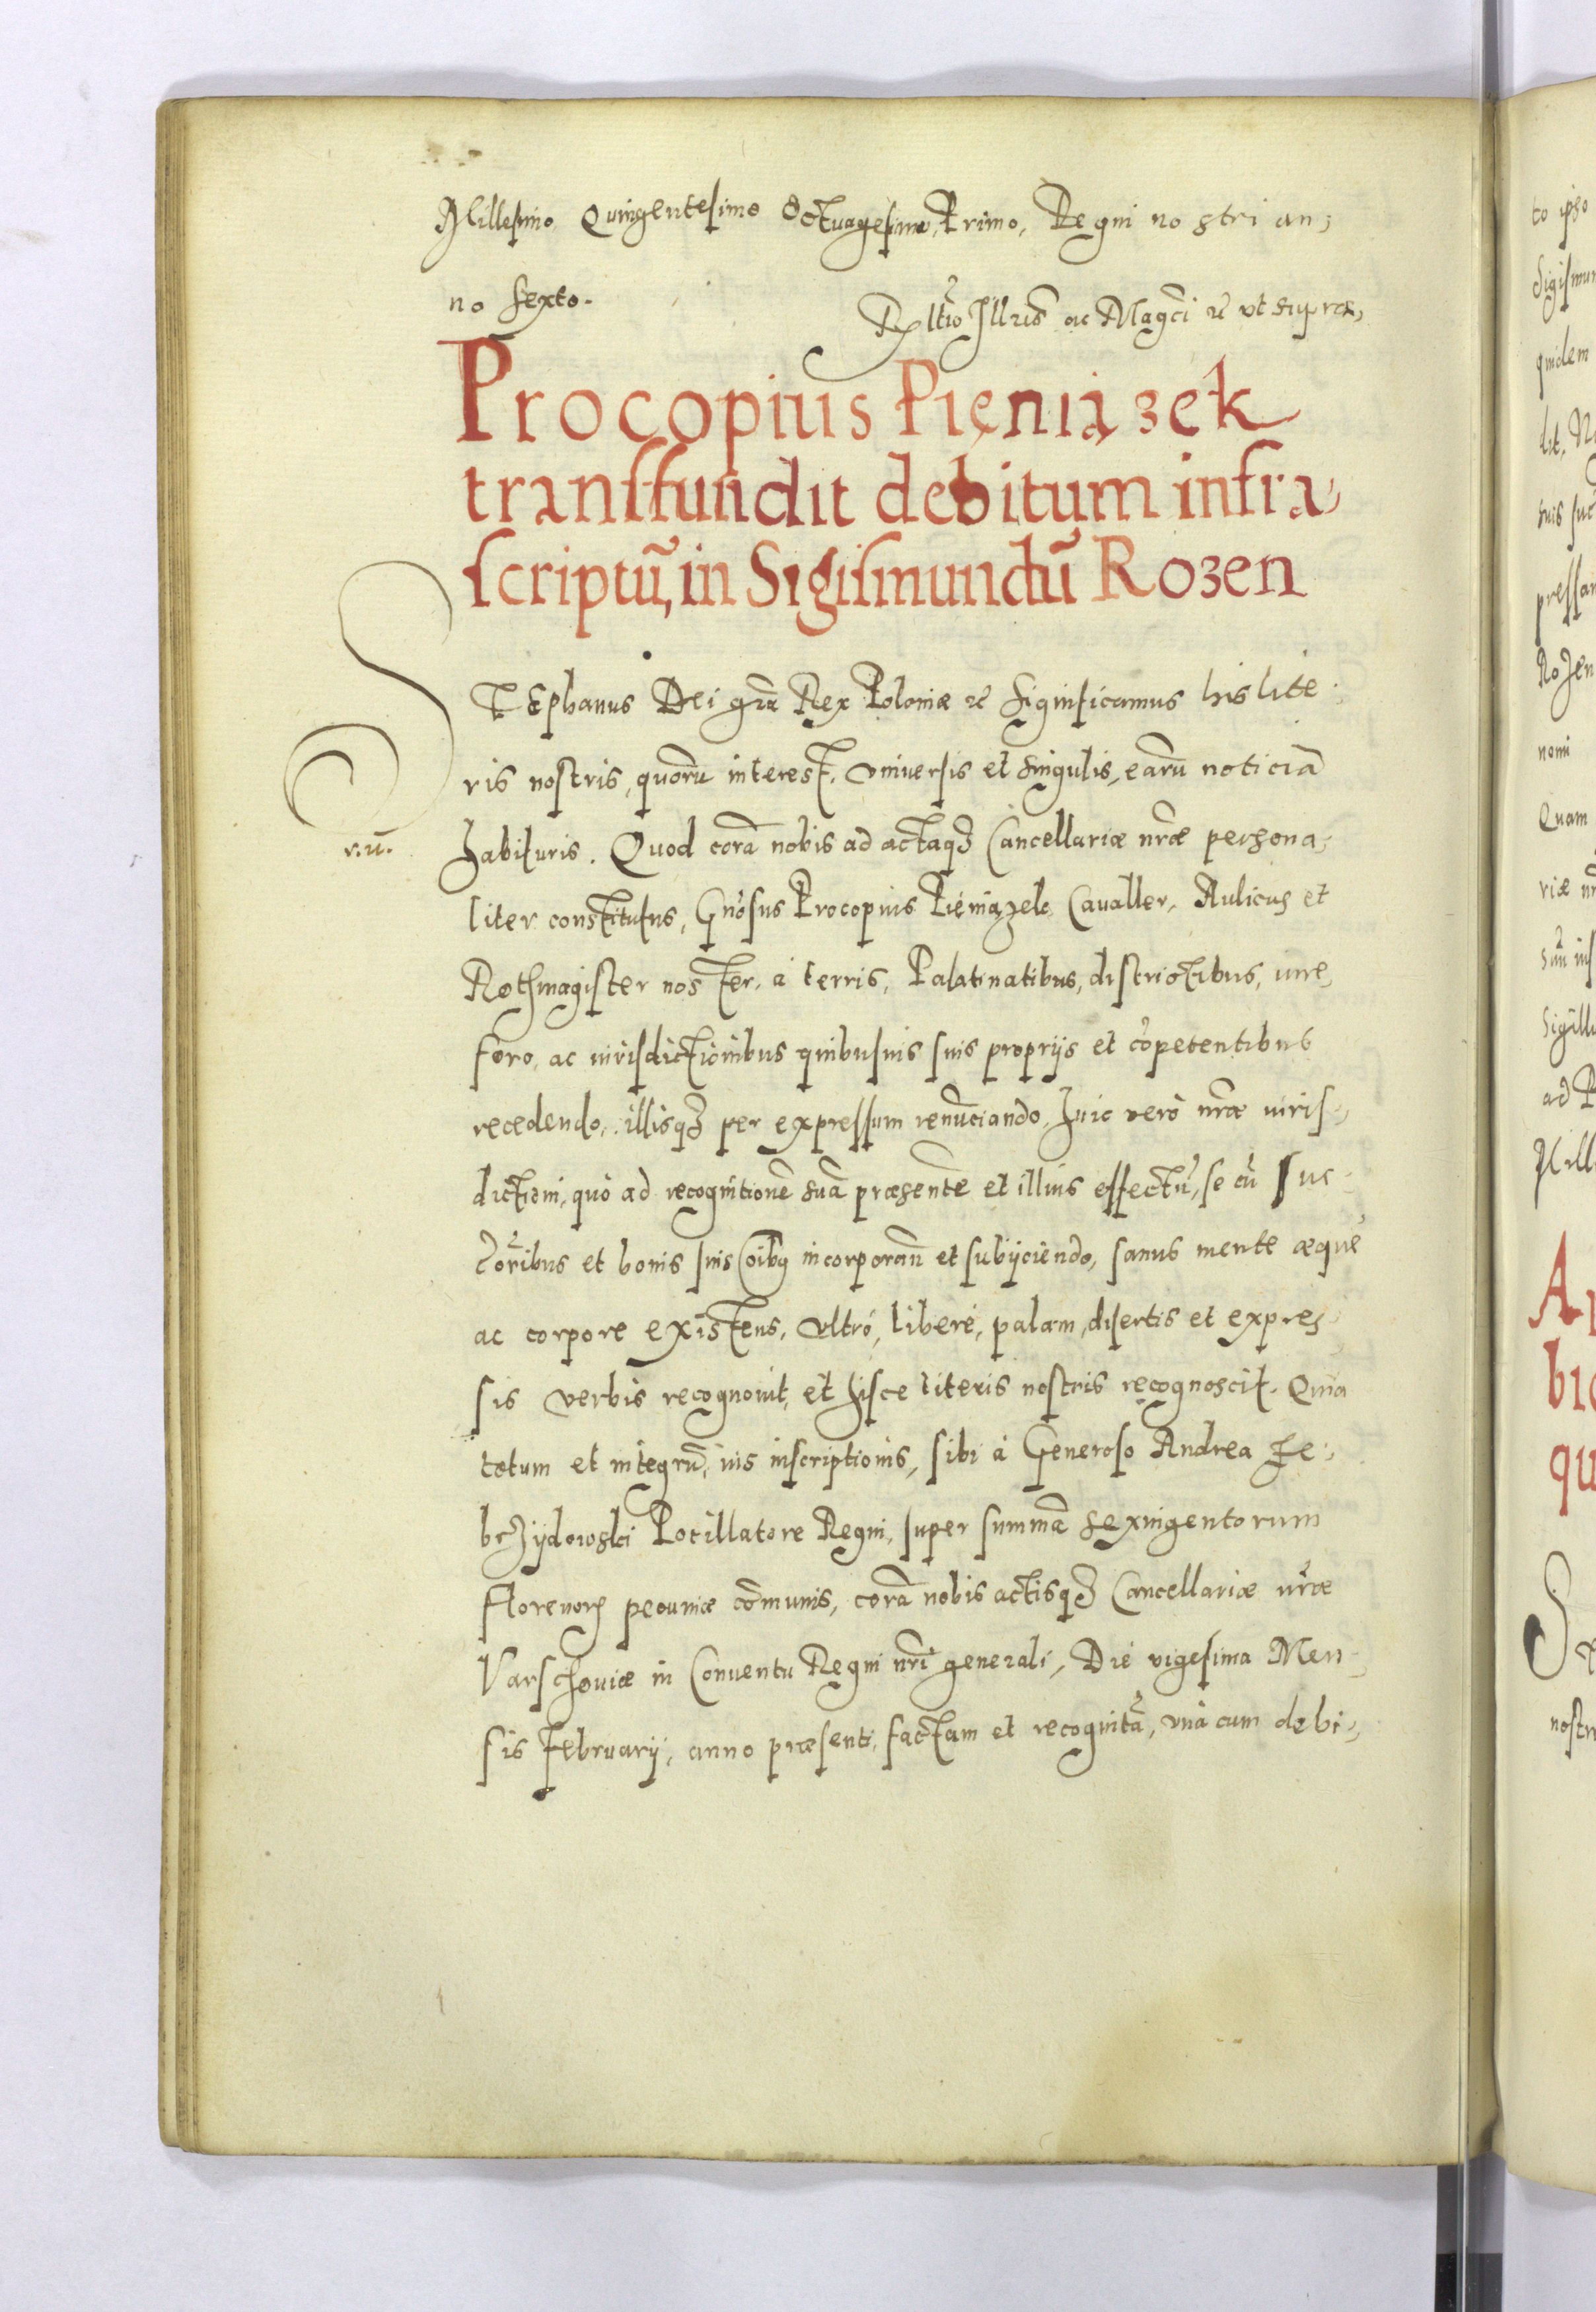 Millesimo Quingentesimo Octuagesimo, Primo, Regni nostri an,
no sexto.
Rltio Illris ac Magci zc vt supra,
Procopius Pięniązek
transfundit debitum infra,
scriptũ, in Sigismundũ Rozen
STEphanus Dei grã Rex Poloniæ zc Significamus his lite
ris nostris, quorũ interest, vniuersis et singulis, earũ noticiã
v.u. habituris. Quod corã nobis ad actaqȝ Cancellariæ nrãe persona,
liter constitutus, Gnosus Procopius Pięniązek Cavaller, Aulicus et
Rothmagister noster, à terris, Palatinatibus, districtibus, iure,
foro, ac iurisdictionibus quibusuis suis proprijs et cõpetentibus
recedendo, illisqȝ per expressum renũciando, huic verò nrãe iuris,
dictioni, quò ad recognitionẽ suã præsentẽ et illius effectũ, se cũ suc
cõribus et bonis suis oibus incorporãn et subijciendo, sanus mente æquè
ac corpore existens, vltrò, liberè, palam, disertis et expres
sis verbis recognouit, et hisce literis nostris recognoscit. Quia
totum et integrũ, ius inscriptionis, sibi à Generoso Andrea Ze,
brzijdowski Pocillatore Regni, super summã sexingentorum
Florenorꝝ pecuniæ cõmunis, corã nobis actisqȝ Cancellariæ nrãe
Varschouiæ in Conuentu Regni nri generali, Die vigesima Men
sis February, anno præsenti, factam et recognitã, vnà cum debi,
to ipso
Sigismun
quidem
lit,
suis suc
pressam
Rozen
nomi
Quam
riæ
sũ ins
Sigillu
ad
Mill
bi
qu
nostr